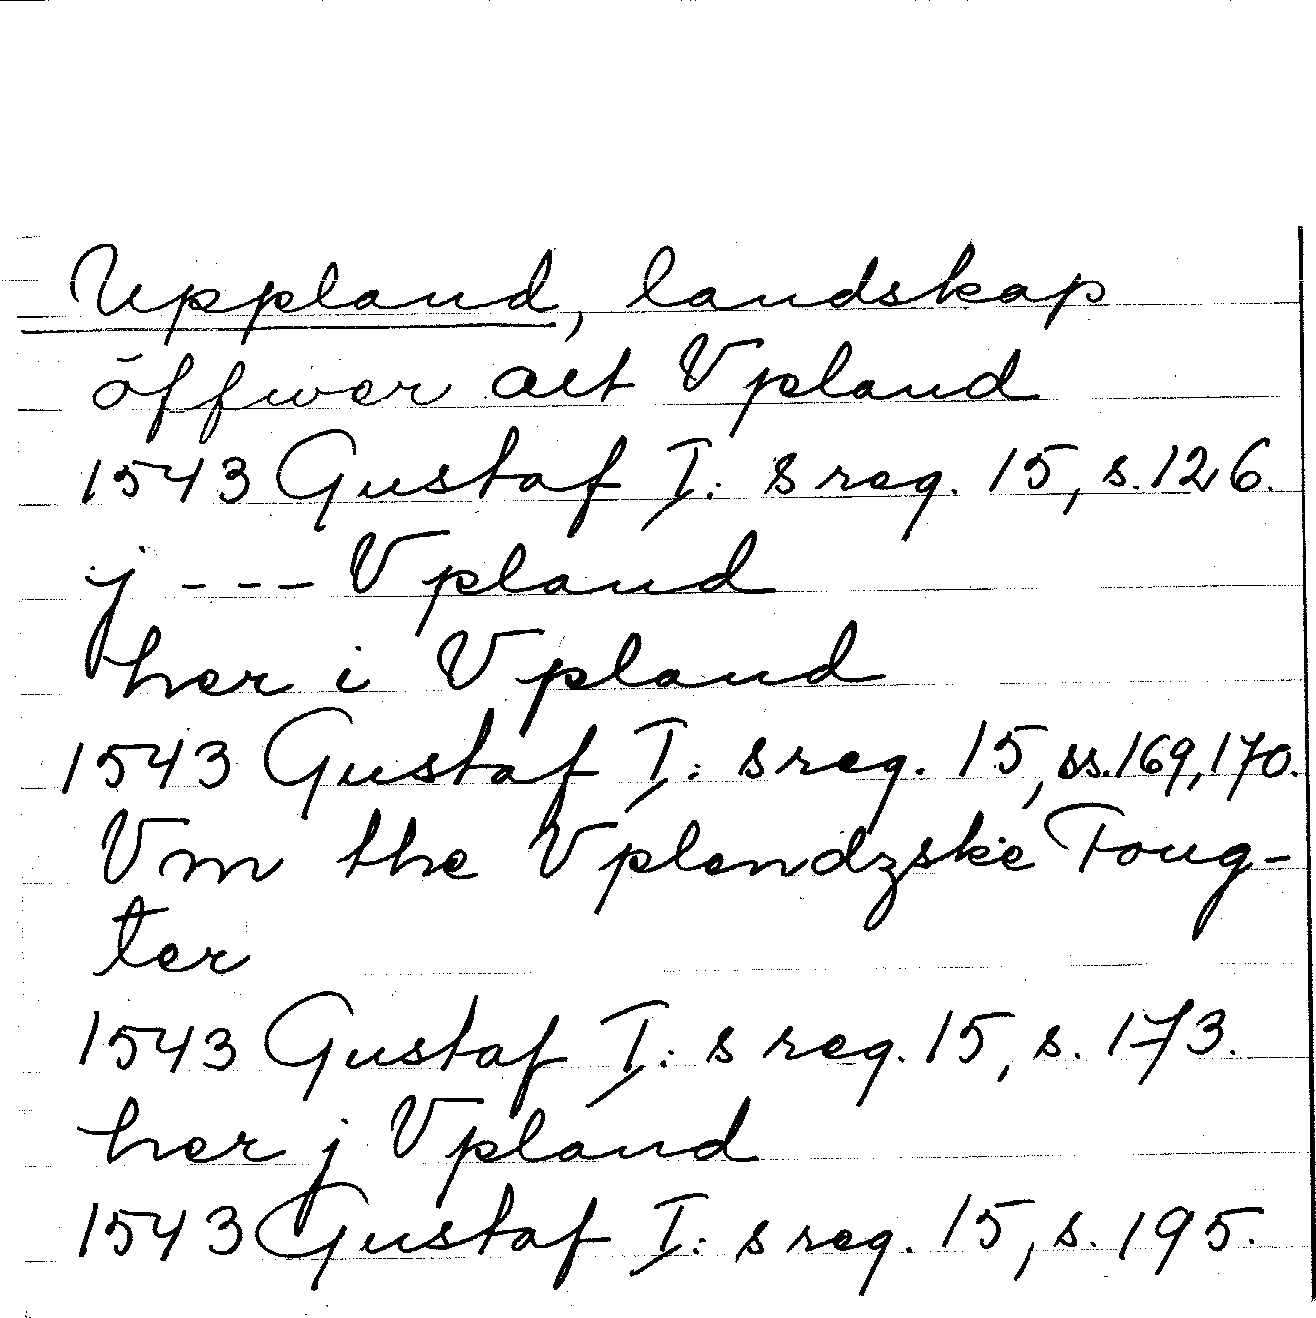 Uppland, landskap
öffwer alt Vpland
1543 Gustaf I: s reg. 15, s. 126.
j --- Vpland
her i Vpland
1543 Gustaf I: s reg. 15, ss. 169, 170.
Vm the Vplendzske Foug-
ter
1543 Gustaf I: s reg. 15, s. 173.
her j Vpland
1543 Gustaf I: s reg. 15, s. 195.